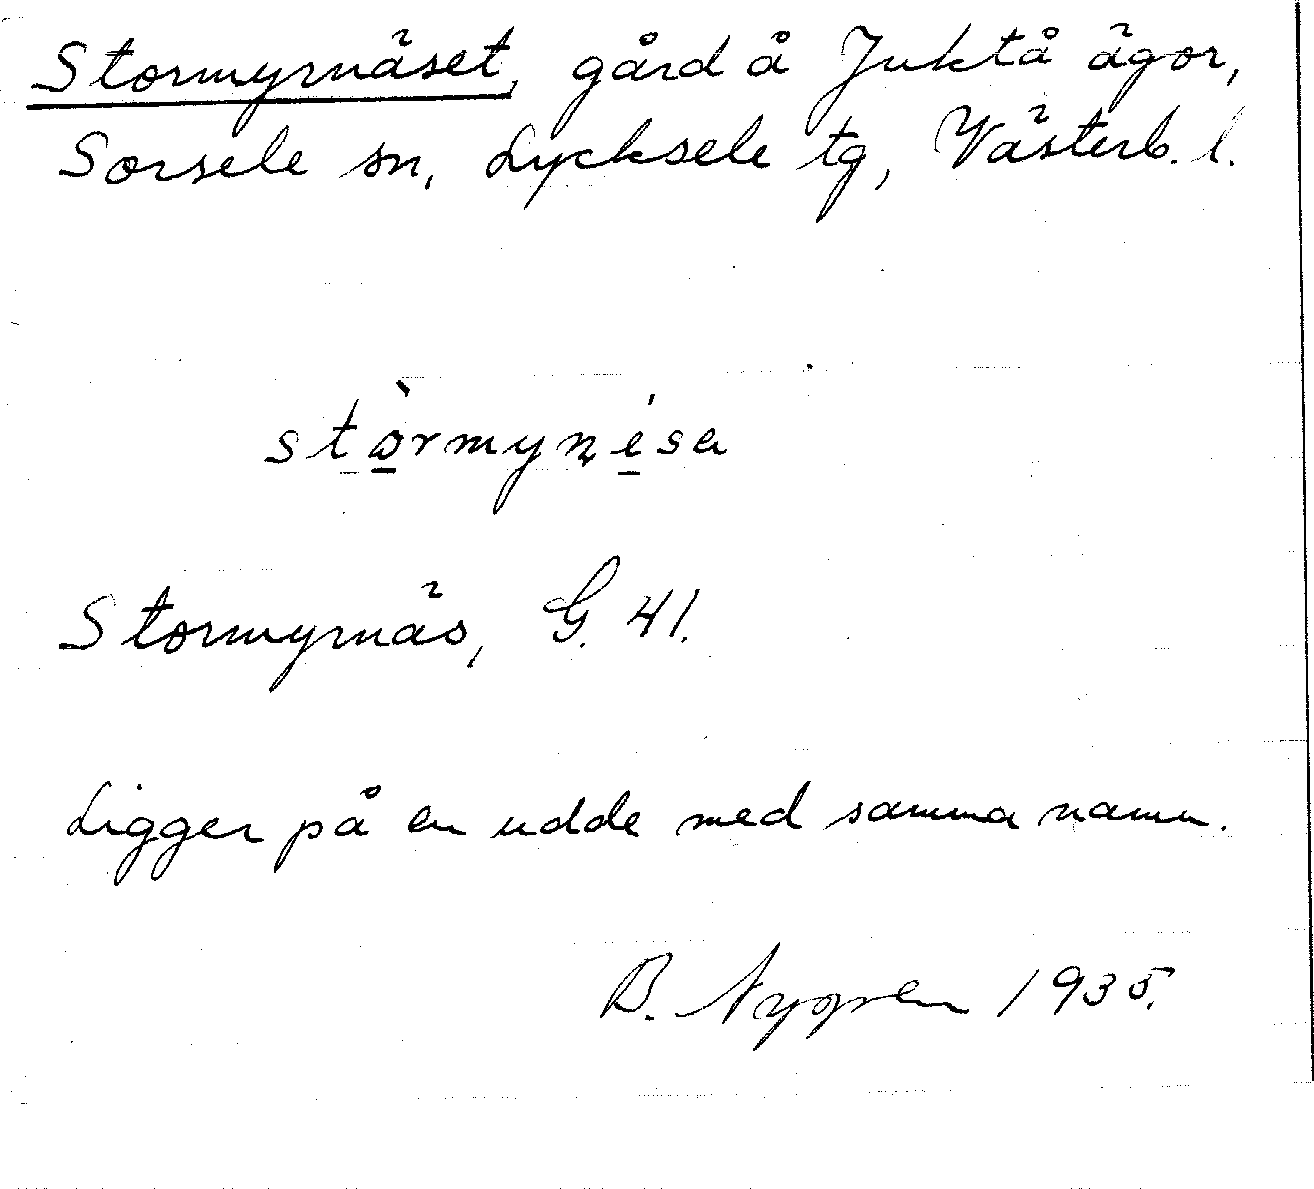 Stormyrnäset, gård å Juktå ägor,
Sorsele sn, Lycksele tg, Västerb. l.
stò̱rmyni̱sa
Stormyrnäs, G. 41.
Ligger på en udde med samma namn.
B. Nygren 1935.